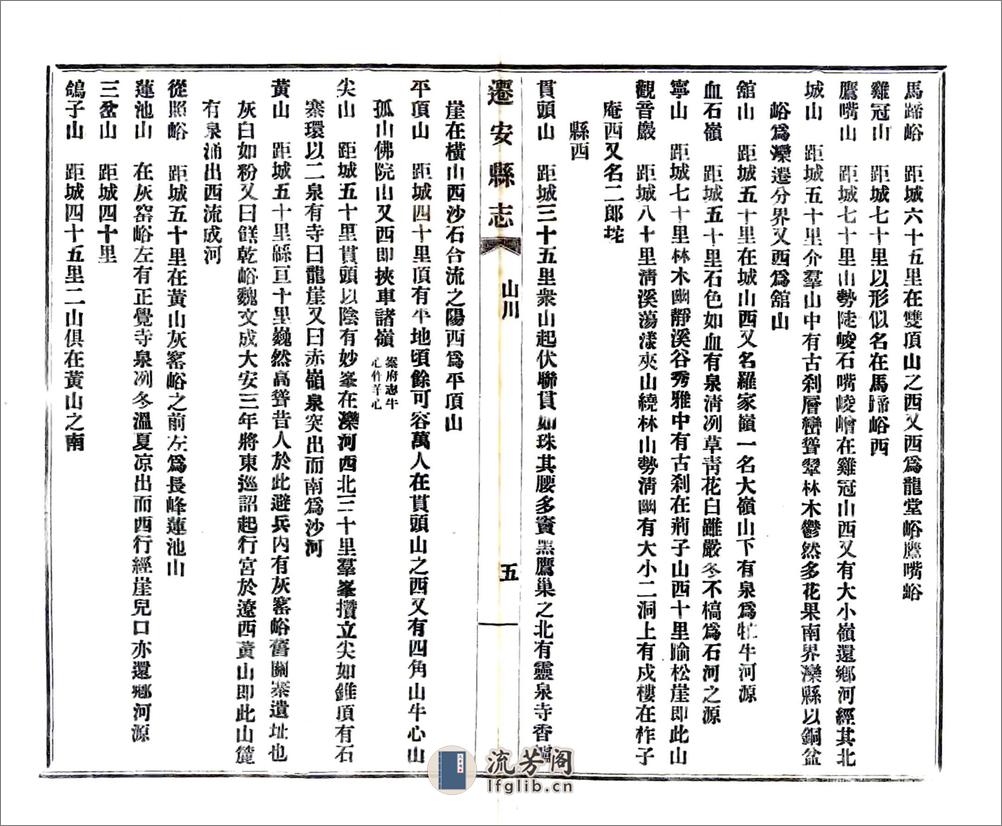 馬蹄峪　距城六十五里在雙頂山之西又西爲龍堂峪鷹嘴峪
雞冠山　距城七十里以形似名在馬蹄峪西
鷹嘴山　距城七十里山勢陡峻石嘴崚嶒在雞冠山西又有大小嶺還鄉河經其北
城山　距城五十里介羣山中有古刹層巒聳翠林木鬱然多花果南界灤縣以銅盆
峪爲灤遷分界又西爲舘山
舘山　距城五十里在城山西又名羅家嶺一名大嶺山下有泉爲牤牛河源
血石嶺　距城五十里石色如血有泉清冽草靑花白雖嚴冬不槁爲石河之源
寧山　距城七十里林木幽靜溪谷秀雅中有古刹在荊子山西十里踰松崖即此山
觀音巖　距城八十里清溪蕩漾夾山繞林山勢清幽有大小二洞上有戍樓在柞子
庵西又名二郎坨
縣西
貫頭山　距城三十五里衆山起伏聯貫如珠其腰多竇黑鷹巢之北有靈泉寺香爐
遷安縣志
山川
五
崖在橫山西沙石合流之陽西爲平頂山
平頂山　距城四十里頂有平地頃餘可容萬人在貫頭山之西又有四角山牛心山
孤山佛院山又西即挾車諸嶺案府志牛心作羊心
尖山　距城五十里貫頭以陰有妙峯在灤河西北三十里羣峯攢立尖如錐頂有石
寨環以二泉有寺曰龍崖又曰赤嶺泉突出而南爲沙河
黃山　距城五十里緜亘十里巍然高聳昔人於此避兵內有灰窰峪舊關寨遺址也
灰白如粉又曰餻乾峪魏文成大安三年將東巡詔起行宮於遼西黃山即此山麓
有泉涌出西流成河
從照峪　距城五十里在黃山灰窰峪之前左爲長峰蓮池山
蓮池山　在灰窰峪左有正覺寺泉冽冬溫夏凉出而西行經崖兒口亦還鄉河源
三岔山　距城四十里
鴿子山　距城四十五里二山俱在黃山之南
流芳阁
lfglib.cn